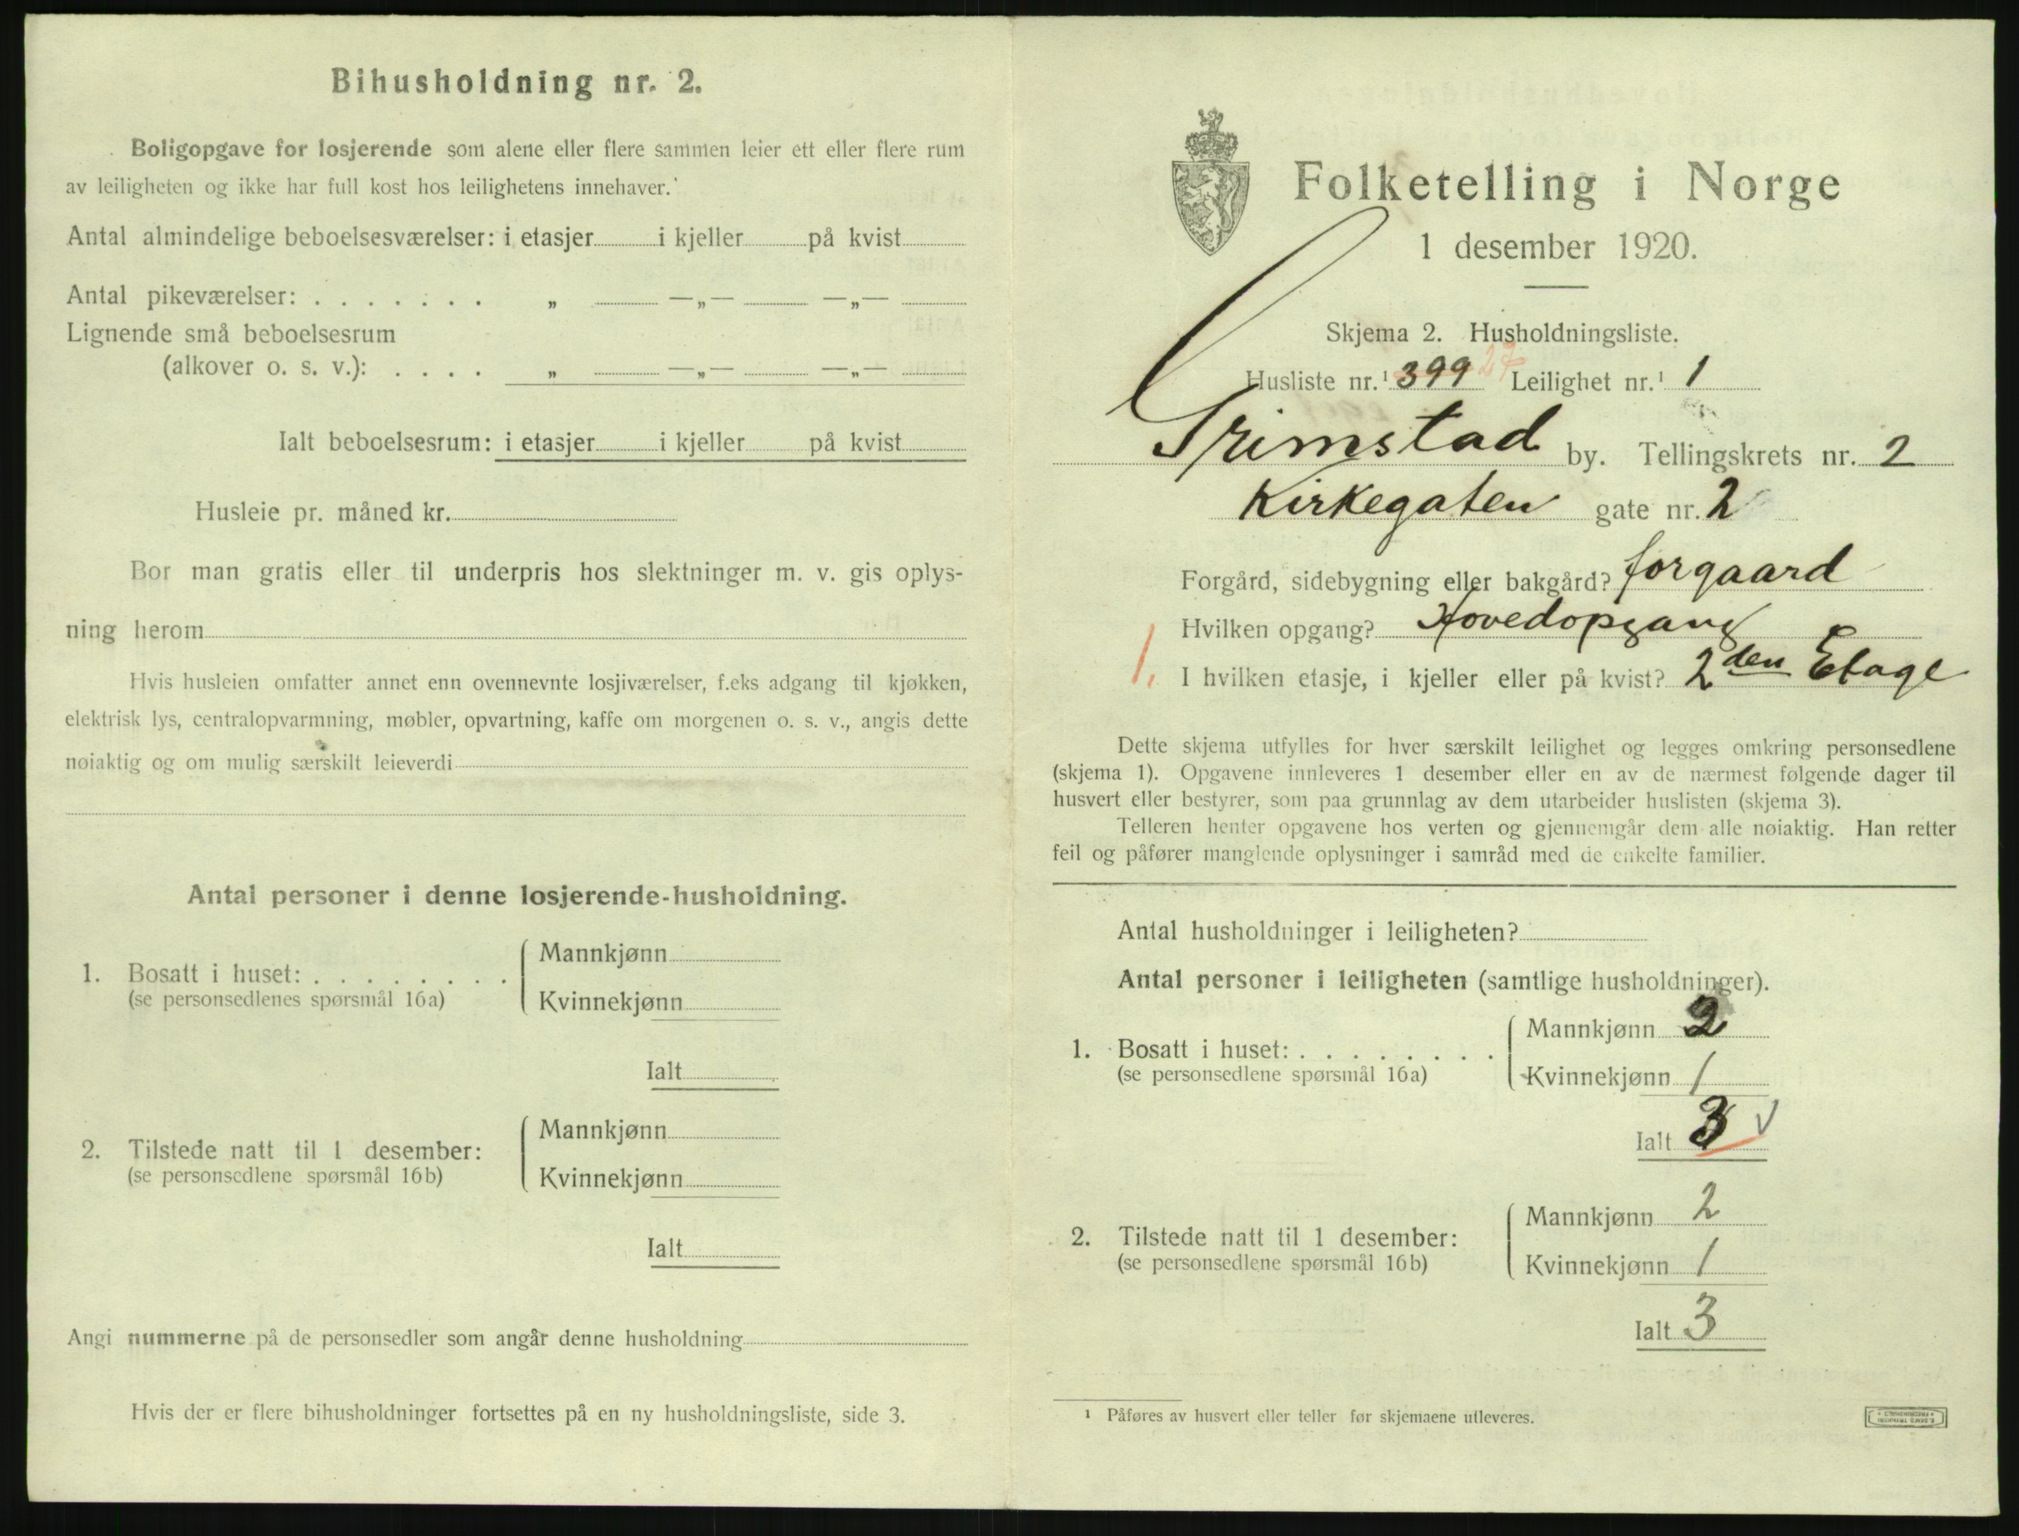 Bihusholdning nr. 2.
Boligopgave for losjerende som alene eller flere sammen leier ett eller flere rum
av leiligheten og ikke har full kost hos leilighetens innehaver.
Antal almindelige beboelsesværelser: i etasjer i kjeller på kvist
Antal pikeværelser: . . . . . . . „ —„— —„—
Lignende små beboelsesrum
(alkover o. s. v.): . . . . „ —„— —„—
Ialt beboelsesrum: i etasjer i kjeller på kvist
Husleie pr. måned kr.
Bor man gratis eller til underpris hos slektninger m. v. gis oplys-
ning herom
Hvis husleien omfatter annet enn ovennevnte losjiværelser, f.eks adgang til kjøkken,
elektrisk lys, centralopvarmning, møbler, opvartning, kaffe om morgenen o. s. v., angis dette
nøiaktig og om mulig særskilt leieverdi
Antal personer i denne losjerende-husholdning.
1. Bosatt i huset: . . . . . . . .
(se personsedlenes spørsmål 16a)
Mannkjønn
Kvinnekjønn
Ialt
2. Tilstede natt til 1 desember:
(se personsedlene spørsmål 16b)
Mannkjønn
Kvinnekjønn
Ialt
Angi nummerne på de personsedler som angår denne husholdning
Hvis der er flere bihusholdninger fortsettes på en ny husholdningsliste, side 3.
Folketelling i Norge
1 desember 1920.
Skjema 2. Husholdningsliste.
Husliste nr.¹ 399 27 Leilighet nr.¹ 1
Grimstad by. Tellingskrets nr. 2
Kirkegaten gate nr. 2
Forgård, sidebygning eller bakgård? forgaard
Hvilken opgang? Hovedopgang
1. I hvilken etasje, i kjeller eller på kvist? 2den Etage
Dette skjema utfylles for hver særskilt leilighet og legges omkring personsedlene
(skjema 1). Opgavene innleveres 1 desember eller en av de nærmest følgende dager til
husvert eller bestyrer, som paa grunnlag av dem utarbeider huslisten (skjema 3).
Telleren henter opgavene hos verten og gjennemgår dem alle nøiaktig. Han retter
feil og påfører manglende oplysninger i samråd med de enkelte familier.
Antal husholdninger i leiligheten?
Antal personer i leiligheten (samtlige husholdninger).
1. Bosatt i huset: . . . . . . . .
(se personsedlene spørsmål 16a)
Mannkjønn 2
Kvinnekjønn 1
Ialt 3 √
2. Tilstede natt til 1 desember:
(se personsedlene spørsmål 16b)
Mannkjønn 2
Kvinnekjønn 1
Ialt 3
¹ Påføres av husvert eller teller før skjemaene utleveres.